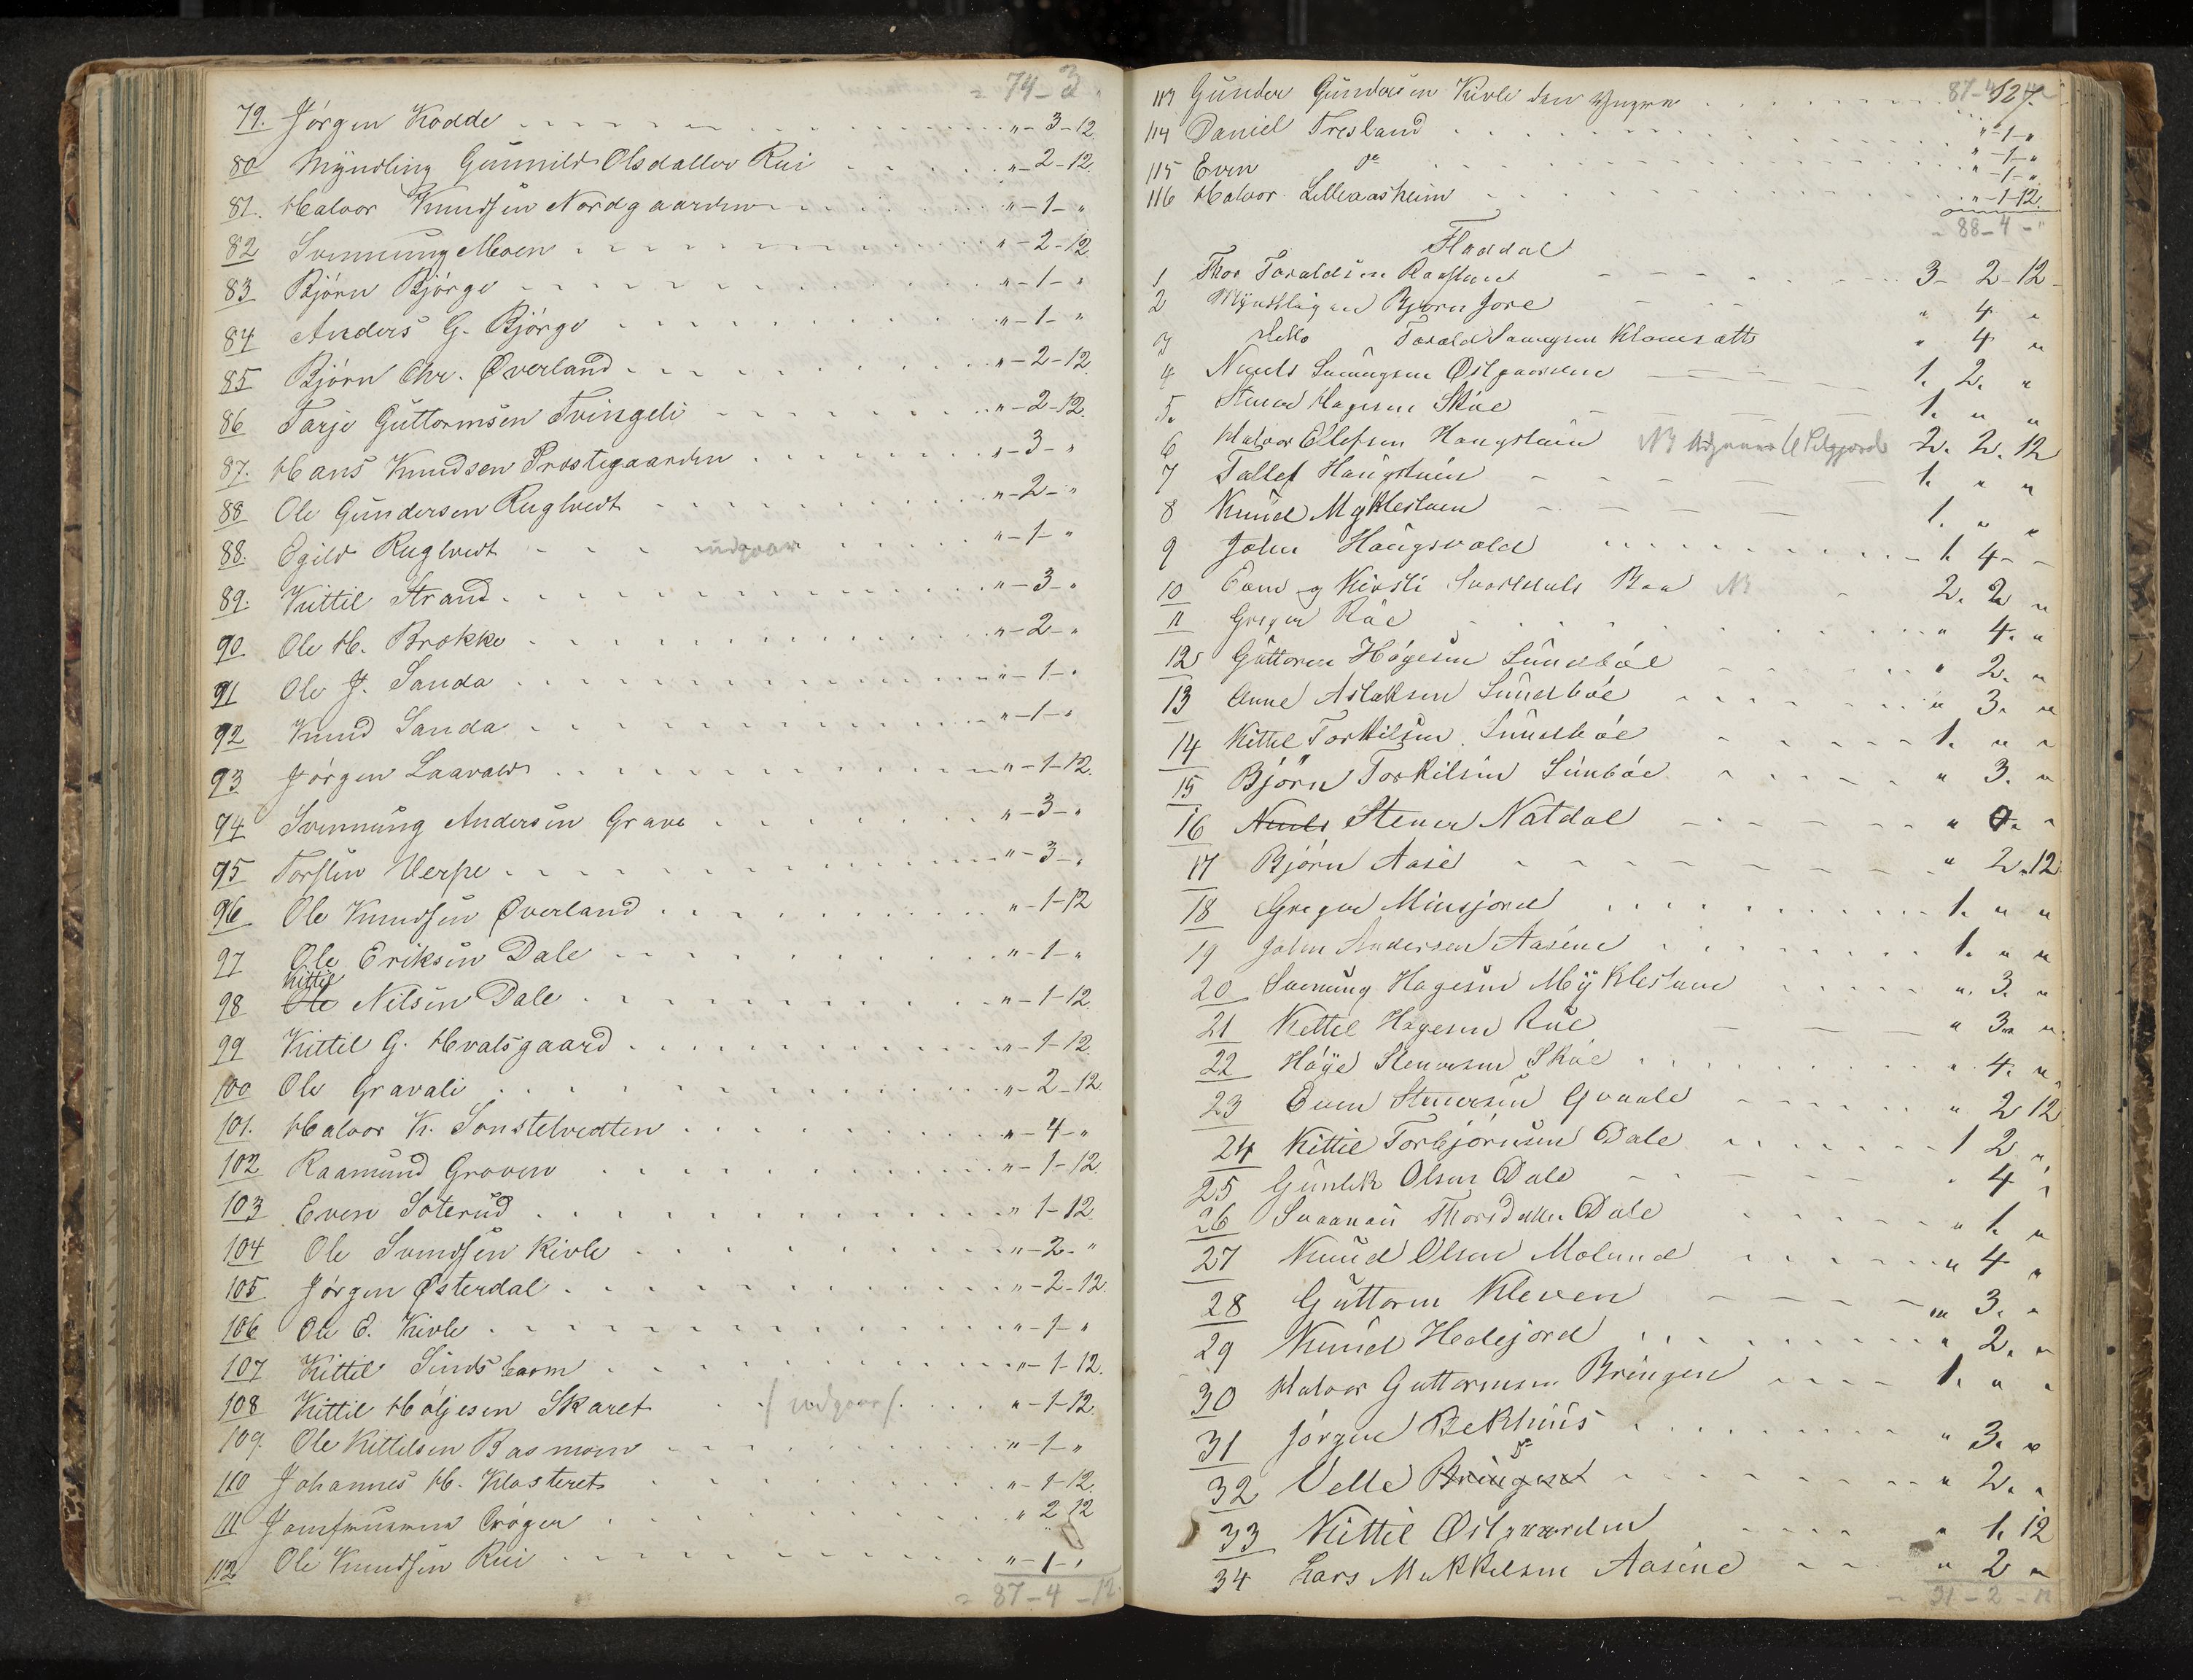 74-3
79. Jørgen Kodde „-3-12.
80 Myndling Gunnild Olsdatter Rui „-2-12.
81. Halvor Knudsen Nordgaarden „-1-„
82 Svennung Moen „-2-12.
83 Bjørn Bjørge „-1-„
84 Anders G. Bjørge „-1-„
85 Bjørn Chr. Øverland „-2-12.
86 Tarje Guttormsen Tvingeli „-2-12.
87. Hans Knudsen Prestegaarden „-3-„
88 Ole Gundersen Ruglvedt „-2-„
88. Egild Ruglvedt udgaar „-1-„
89. Kittil Strand „-3-„
90. Ole H. Brokke „-2-„
91 Ole J. Sanda „-1-„
92 Knud Sanda „-1-„
93 Jørgen Laavald „-1-12.
94 Svennung Andersen Grave „-3-„
95 Torsten Verpe „-3-„
96 Ole Knudsen Øverland „-1-12
97 Ole Eriksen Dale „-1-„
Kittil
98 Ole Nilsen Dale „-1-12.
99 Kittil G. Hvalsgaard „-1-12.
100 Ole Gravali „-2-12.
101. Halvor K. Sonstelvedten „-4-„
102 Raamund Groven „-1-12.
103 Even Soterud „ 1-12.
104 Ole Svendsen Kivle „-2-„
105. Jørgen Østerdal „-2-12.
106 Ole E. Kivle „-1-„
107 Kittil Sindsbarm „-1-12.
108 Kittil Høljesen Skaret / udgaar / „-1-12.
109. Ole Kittilsen Basmoen „-1-„
110 Johannes H. Klosteret „-1-12.
111 Jomfruerne Crøger „ 2 12
112 Ole Knudsen Rui „-1-„
87-4-12
127.
113 Gunder Gundersen Kivle den Yngre „-1-„
114 Daniel Tresland „-1-„
115 Even do „-1-„
116 Halvor Lilleaasheim „-1-12.
88-4-„
Flaadal
1 Thor Toraldsen 3- 2-12
2 Bjørn Jore „ 4 „
3 Ditto Torald „ 4 „
4 Østgaarden 1. 2. „
5. Hagesen Skåe 1. „ „
6 Halvor Ellefsen Haugstuen NB 2. 2. 12
7 Tallef Haugstuen 1. „ „
8 Knud Myklestuen 1. „ „
9 John Haugsvold 1. 4 -
10 og Kirsti Baa NB 2. 2 „
11 Gregar Råe „ 4. „
12 Guttorm Høgesen Sundbøe „ 2. „
13 Anne Aslaksen Sundbøe „ 3. „
14 Kittel Torkilsen Sundbøe 1. „ „
15 Bjørn Torkilsen Sunbøe „ 3. „
16 Stener Natdal „ 0. „
17 Bjørn Aase „ 2.12
18 Gregar Minsjord 1. „ „
19 John Andersen Aasene 1. „ „
20 Svenung Hagesen Myklestuen „. 3. „
21 Kettel Hagesen Rue „ 3. „
22 Høye Stenersen Skåe „ 4. „
23 Even Stenersen Gvaale „ 2 12
24 Kittil Torbjørnsen Dale 1 2 „
25 Gunlek Olsen Dale „ 4 „
26 Thorsdatter Dale „ 1. „
27 Knud Olsen Molund „ 4 „
28 Guttorm Kleven „ 3. „
29 Knud Hedejord „ 2. „
30 Halvor Guttormsen Bringen 1. „ „
31 Jørgen Bekhuus „ 3. „
32 Velle Bringen do „ 2. „
33 Kittil Østgaarden „ 1. 12
34 Lars Mikkelsen Aasene „ 2 „
31-2-12